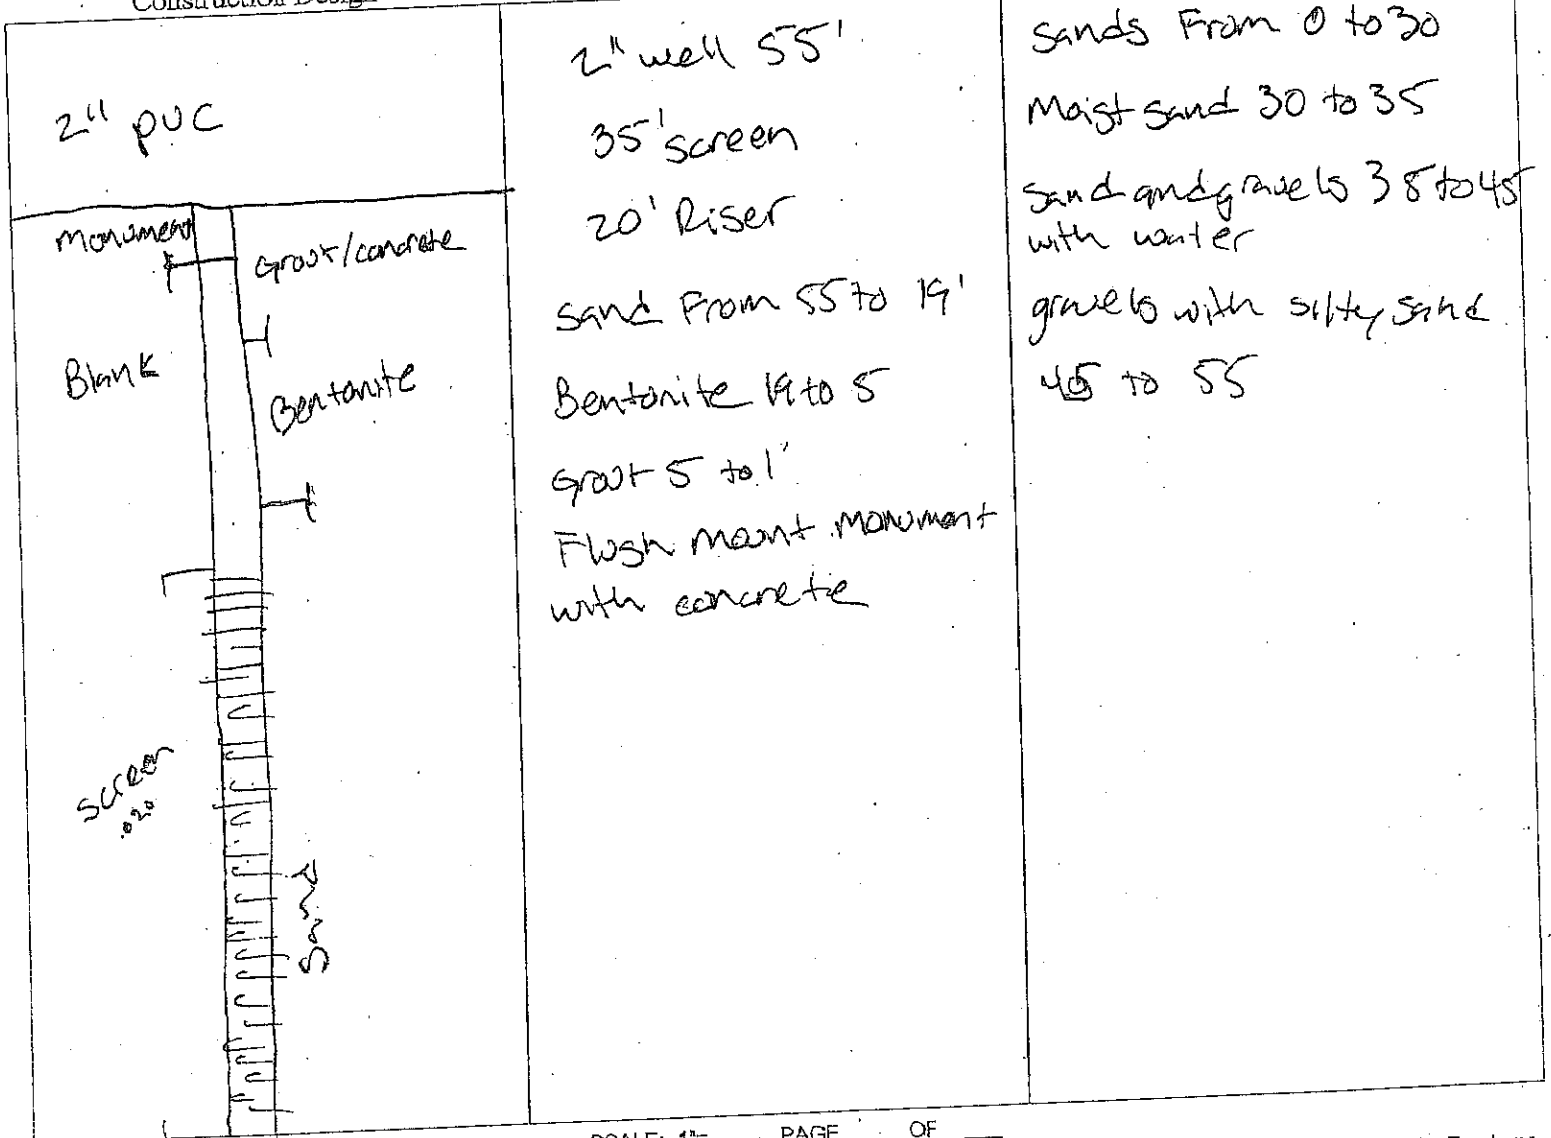 Construction Design
2" PVC
Monument
Grout/concrete
Blank
Bentonite
Screen
.020
Sand
2" well 55'
35' screen
20' Riser
Sand From 55 to 19'
Bentonite 19 to 5
Grout 5 to 1'
Flush mount monument
with concrete
Sands From 0 to 30
Moist sand 30 to 35
Sand and gravels 35 to 45
with water
gravels with silty sand
45 to 55
SCALE: 1"=
PAGE
OF